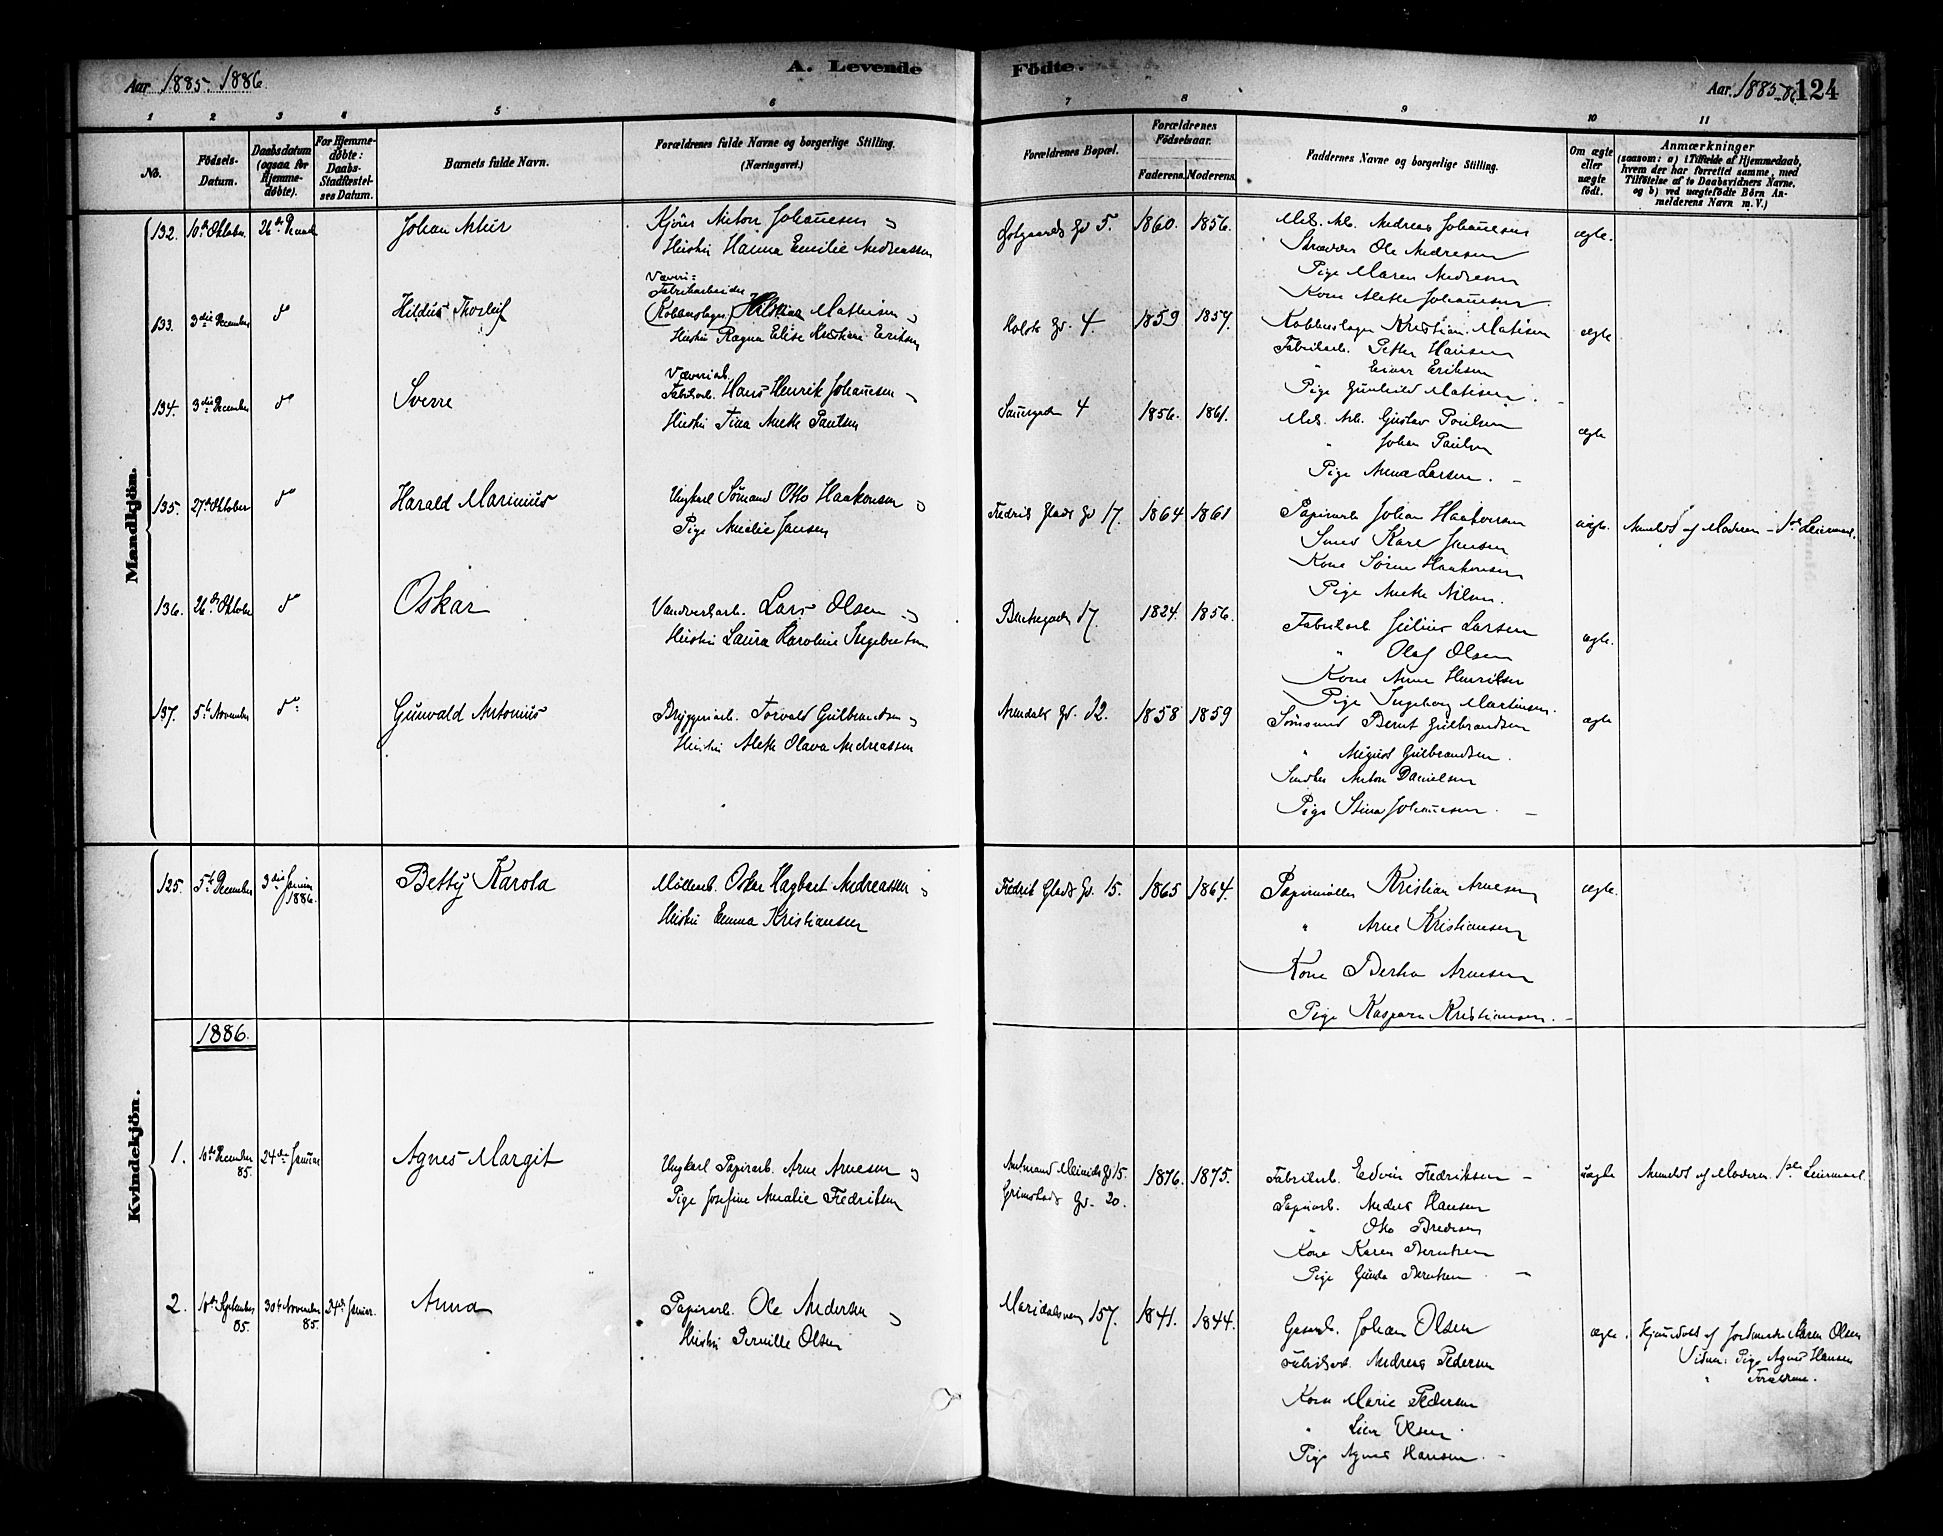 Aar 1885. 1886.
A. Levende
Fødte.
Aar 1885-86
124
1 2 3 4 5 6
7 8 9 10 11
No.
Fødsels-
Datum.
Daabsdatum
(ogsaa for
Hjemme-
døbte).
For Hjemme-
døbte:
Daabs-
Stadfæstel-
ses Datum.
Barnets fulde Navn.
Forældrenes fulde Navne og borgerlige Stilling.
(Næringsvei.)
Forældrenes Bopæl.
Forældrenes
Fødselsaar.
Faderens.
Moderens.
Faddernes Navne og borgerlige Stilling.
Om ægte
eller
uægte
født.
Anmærkninger
(saasom: a) i Tilfælde af Hjemmedaab,
hvem der har forrettet samme, med
Tilføielse af to Daabsvidners Navne,
og b) ved uægtefødte Børn An-
melderens Navn m. V.)
Mandkjøn.
132. 10de Oktober. Johan Artur
Kjører Anton Johannesen
Hustru Hanna Emilie Andreassen
5. 1860. 1856.
Andreas Johannesen
Ole Andresen
Pige Maren Andresen
Kone Alette Johannesen
ægte.
133. 3die December do Hildus Thorleif
Væveri-
Fabrikarbeider
(Kobberslager) Mathisen
Hustru Ragna Elise Kristiane Eriksen
Holsts Gd. 4 1859 1859
Kobberslager Kristian Matisen
Fabrikarb. Petter Hansen
" Einar Eriksen
Pige Gunhild Matisen.
ægte
134. 3die December do Sverre
Væveriarb.
Fabrikarb. Hans Henrik Johannesen
Hustru Tina Anette Paulsen
4 1856. 1861.
Mek. Arb. Gustav Poulsen
" Johan Paulsen
Pige Anna Larsen.
ægte
135. 27de Oktober do Harald Marinius
Ungkarl Sømand Otto Haakonsen
Pige Amalie Jansen
Fredrik Glads Gd 17. 1864 1861
Papirarb. Johan Haakonsen
Smed Karl Jansen
Kone Sørine Haakonsen
Pige Anette Nilsen.
uægte. Anmeldt af Moderen - 1ste Leiermaal.
136. 26de Oktober do Oskar
Vandverksarb. Lars Olsen
Hustru Laura Karoline Ingebretsen
17. 1824. 1856.
Fabrikarb. Julius Larsen
" Olaf Olsen
Kone Anne Henriksen
Pige Ingeborg Martinsen.
ægte.
137. 5te November do Gunvald Antonius
Bryggeriarb. Torvald Gulbrandsen
Hustru Alette Olava Andreassen
Arendals Gd. 12. 1858 1859
Sømand Bernt Gulbrandsen
" August Gulbrandsen.
Snedker Anton Danielsen
Pige Stina Johannesen.
ægte
Kvindekjøn.
125. 5te December 3die Januar
1886. Betty Karola
Møllerarb. Oskar Hagbart Andreassen
Hustru Emma Kristiansen
Fredrik Glads Gd. 15. 1865 1864.
Papirmøller Kristian Arnesen
" Arne Kristiansen
Kone Berta Arnesen
Pige Kaspara Kristiansen.
ægte.
1886.
1. 10de December
85. 24de Januar Agnes Margit
Ungkarl Papirarb. Arne Arnesen
Pige Josefine Amalie Fredriksen
Gd 15.
Grimstads Gd. 20.
1876. 1875.
Fabrikarb. Edvin Fredriksen
Papirarb. Anders Hansen
" Otto Bredesen
Kone Karen Berntsen
Pige Gunda Berntsen.
uægte Anmeldt af Moderen. 1ste Leiermaal.
2. 10de September
85. 30te November
85. 24de Januar. Anna
Papirarb. Ole Andersen
Hustru Pernille Olsen
Maridalsveien 157. 1841. 1844.
Johan Olsen
Fabrikarb. Andreas Pedersen
Kone Marie Pedersen
" Lina Olsen.
Pige Agnes Hansen.
ægte. Hjemmedøbt af Jordmoder Maren Olsen
Vidner: Pige Agnes Hansen
" Forældrene.